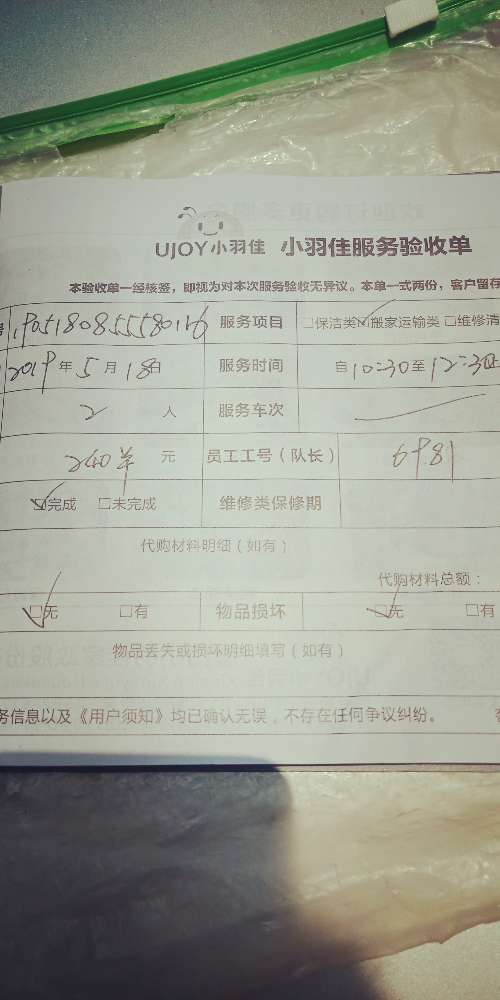 UJOY小羽佳 小羽佳服务验收单
本验收单一经核签，即视为对本次服务验收无异议。本单一式两份，客户留存
服务项目 □保洁类☑搬家运输类□维修清
2019年5月18日 服务时间 自10:30至12:30
2 人 服务车次
240羊 元 员工工号（队长） 6981
☑完成 □未完成 维修类保修期
代购材料明细（如有）
代购材料总额：
☑无 □有 物品损坏 ☑无 □有
物品丢失或损坏明细填写（如有）
务信息以及《用户须知》均已确认无误，不存在任何争议纠纷。